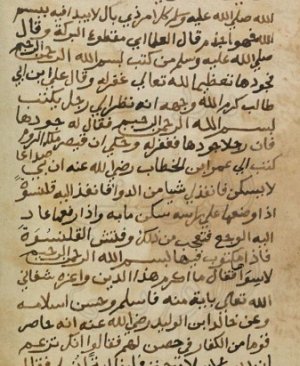 الله صلى الله عليه وسلم كل امر ذي بال لا يبدا فيه ببسم
الله فهو اجذم قال العلما اي مقطوع البركة وقال
صلى الله عليه وسلم من كتب بسم الله الرحمن الرحيم
مجودها تعظيما لله تعالى غفر له وقال علي ابن ابي
طالب كرم الله وجهه انه نظر الي رجل يكتب
بسم الله الرحمن الرحيم فقال له جودها
فان رجلا جودها فغفر له وحكي ان قيصر ملك الروم
كتب الي عمر ابن الخطاب رضي الله عنه ان بي صداعا
لا يسكن فانفذ لي شيا من الدوا فانفذ اليه قلنسوة
اذا وضعها علي راسه سكن ما به واذا رفعها عاد
اليه الوجع فتعجب من ذلك وفتش القلنسوة
فاذا مكتوب فيها بسم الله الرحمن الرحيم
لا سوا فقال ما اكرم هذا الدين واعزه شفاني
الله تعالى باية منه فاسلم وحسن اسلامه
وعن خالد ابن الوليد رضي الله عنه انه حاصر
قوما من الكفار في حصن لهم فقالوا انك تزعم